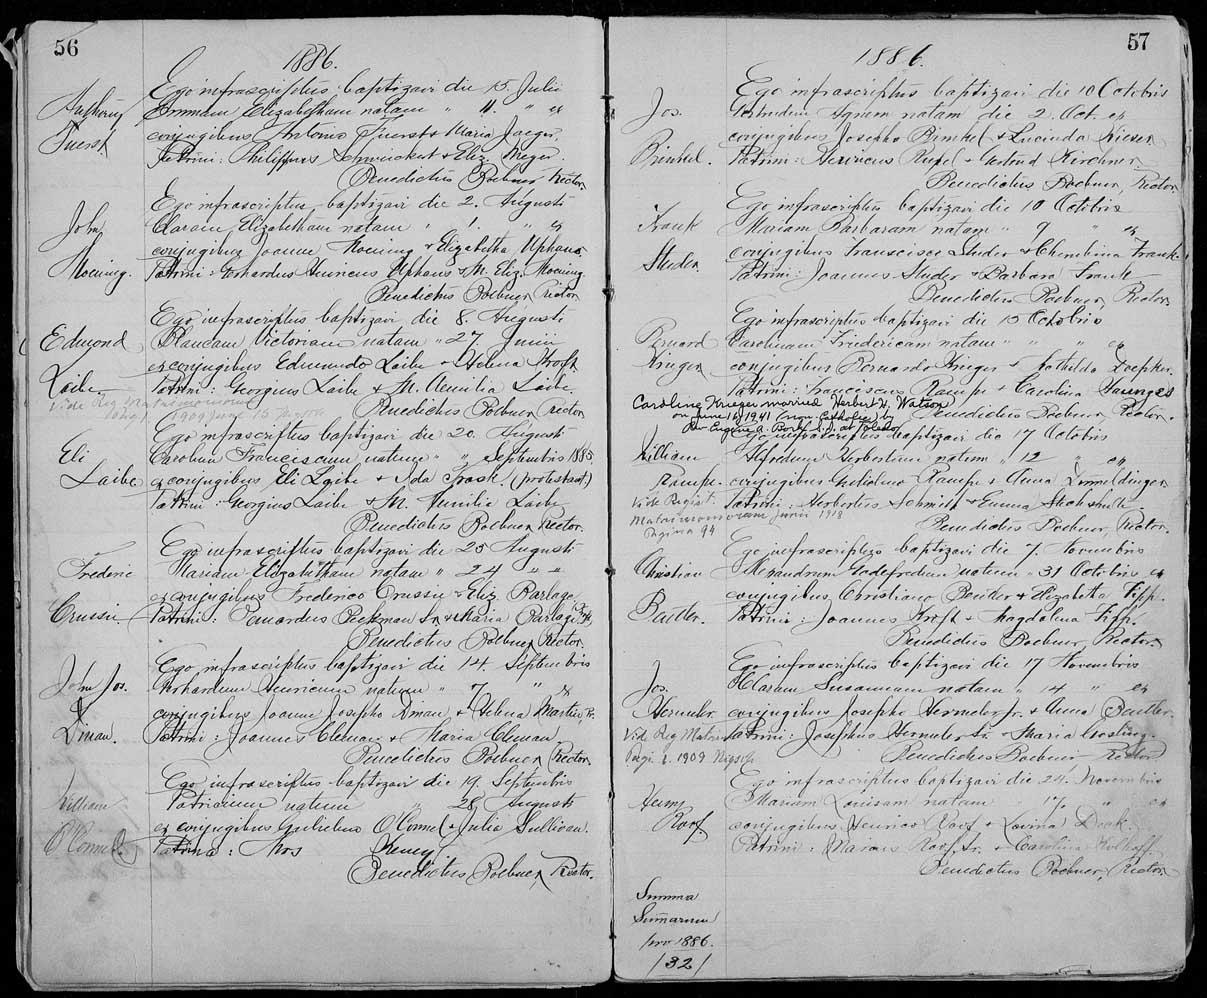 56
1886.
Ego infrascriptus baptizavi die 15. Julii
Anthony Emmam Elizabetham natam " 11. " ex
Fuerst. conjugibus Antonio Fuerst & Maria Jaeger.
Patrini: Philippus Schmuckert & Eliz. Meyer.
Benedictus Boebner, Rector.
Ego infrascriptus baptizavi die 2. Augusti
John Claram Elizabetham natam " 1. " ex
conjugibus Joanne Moening & Elizabetha Uphaus.
Moening. Patrini: Gerhardus Henricus Uphaus & M. Eliz. Moening.
Benedictus Boebner, Rector.
Ego infrascriptus baptizavi die 8. Augusti
Edmond Blancam Victoriam natam " 27. Junii
ex conjugibus Edmundo Laibe & Helena Kroft.
Laibe Patrini: Georgius Laibe & M. Aemilia Laibe
Vide Reg Matrimoniorum
1909 15
Benedictus Boebner, Rector.
Ego infrascriptus baptizavi die 20. Augusti
Eli Carolum Franciscum natum " " Septembris 1885.
Laibe ex conjugibus Eli Laibe & Ida Trask. (protestant.)
Patrini: Georgius Laibe & M. Aemilia Laibe
Benedictus Boebner, Rector.
Ego infrascriptus baptizavi die 25 Augusti
Frederic Mariam Elizabetham natam " 24 " "
ex conjugibus Frederico Crussie & Eliz. Barlage
Crussie Patrini: Bernardus Beckman Sr. & Maria Barlage
Benedictus Boebner, Rector.
Ego infrascriptus baptizavi die 14. Septembris
John Jos. Gerhardum Henricum natum " 7 " ex
conjugibus Joanne Josepho Diman & Helena Martin
Diman. Patrini: Joannes Cleman & Maria Cleman
Benedictus Boebner, Rector.
Ego infrascriptus baptizavi die 19. Septembris
William Patricium natum " 28. Augusti
ex conjugibus Gulielmo O'Connel & Julia Sullivan.
O'Connell. Patrina: Mrs
Benedictus Boebner, Rector.
57
1886.
Ego infrascriptus baptizavi die 10 Octobris
Jos. Gertrudem Agnem natam die 2. Oct. ex
conjugibus Josepho Binkel & Lucinda
Patrini: Henricus & Gertrud Kirchner
Benedictus Boebner, Rector
Ego infrascriptus baptizavi die 10 Octobris
Frank Mariam Barbaram natam " 9 " ex
Studer conjugibus Francisco Studer & Cherubina Frank.
Patrini: Joannes Studer & Barbara Frank
Benedictus Boebner, Rector
Ego infrascriptus baptizavi die 15 Octobris
Bernard Carolinam Fridericam natam " " " ex
Krieger conjugibus Bernardo Krieger & Mathilda Doepker.
Patrini: Franciscus Kampe & Carolina
Caroline Krieger married Herbert H. Watson
on June 16, 1941 (non-Catholic) by
Rev Eugene A. S.J. at Toledo
Benedictus Boebner, Rector.
Ego infrascriptus baptizavi die 17 Octobris
William Alfredum Herbertum natum " 12 " ex
Kampe. conjugibus Gulielmo Kampe & Anna Dimmeldinger
Vide Regist. Patrini: Herbertus Schmidt & Emma
Matrimoniorum Junii 1918
Pagina 94
Benedictus Boebner, Rector.
Ego infrascriptus baptizavi die 7. Novembris
Christian Alexandrum Godefredum natum " 31 Octobris ex
conjugibus Christiano Beutler & Elizabetha Fipp.
Beutler. Patrini: Joannes Kroft & Magdalena Fipp.
Benedictus Boebner, Rector.
Ego infrascriptus baptizavi die 17 Novembris
Jos. Claram Susannam natam " 14 " ex
Hermeler conjugibus Josepho Hermeler Jr. & Anna Beutler.
Vid. Reg Matrim. Patrini: Josephus Hermeler Sr. & Maria
Pagi. 2. 1909
Benedictus Boebner, Rector.
Ego infrascriptus baptizavi die 24. Novembris
Henry Mariam Louisam natam 17. " ex
Roof conjugibus Henrico Roof & Lovina Doak.
Patrini: Marcus Roof Sr. & Carolina
Benedictus Boebner, Rector
Summa
Summarum
pro 1886.
/32/